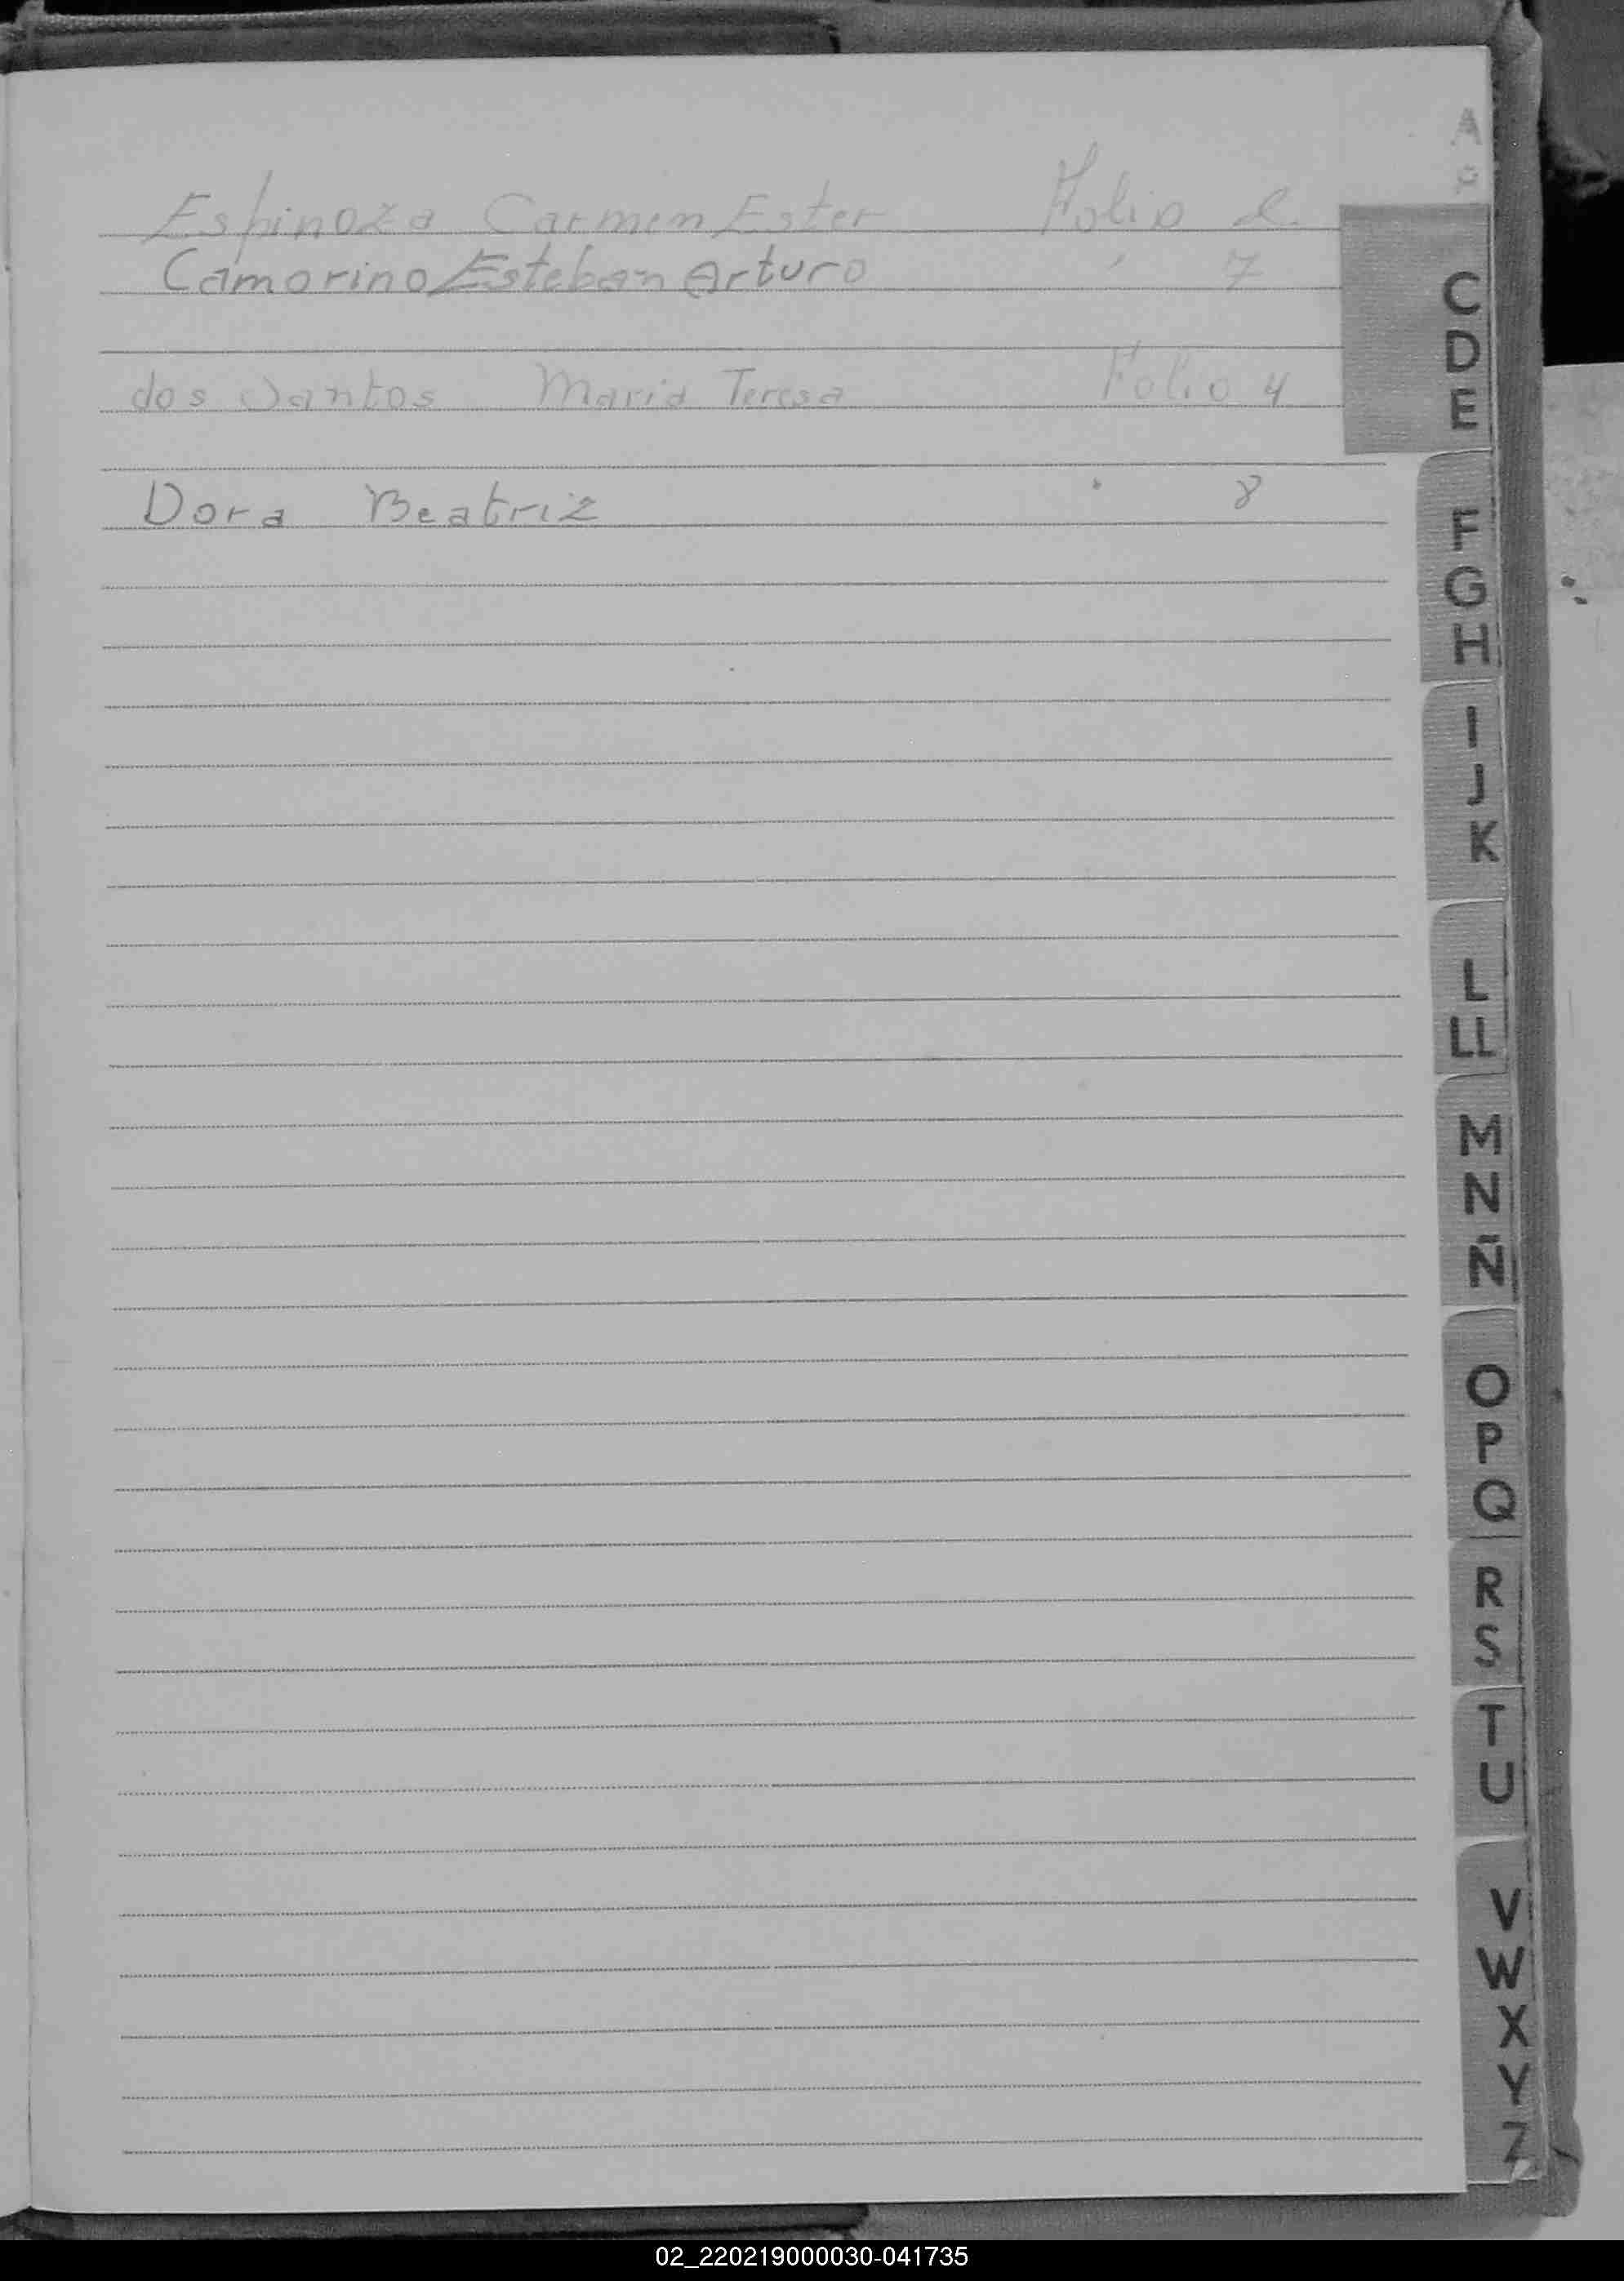 Espinoza Carmen Ester Folio 2.
Camorino Esteban Arturo " 7
dos Santos Maria Teresa Folio 4
Dora Beatriz " 8
A
C
D
E
F
G
H
I
J
K
L
Ll
M
N
Ñ
O
P
Q
R
S
T
U
V
W
X
Y
Z
02_220219000030-041735